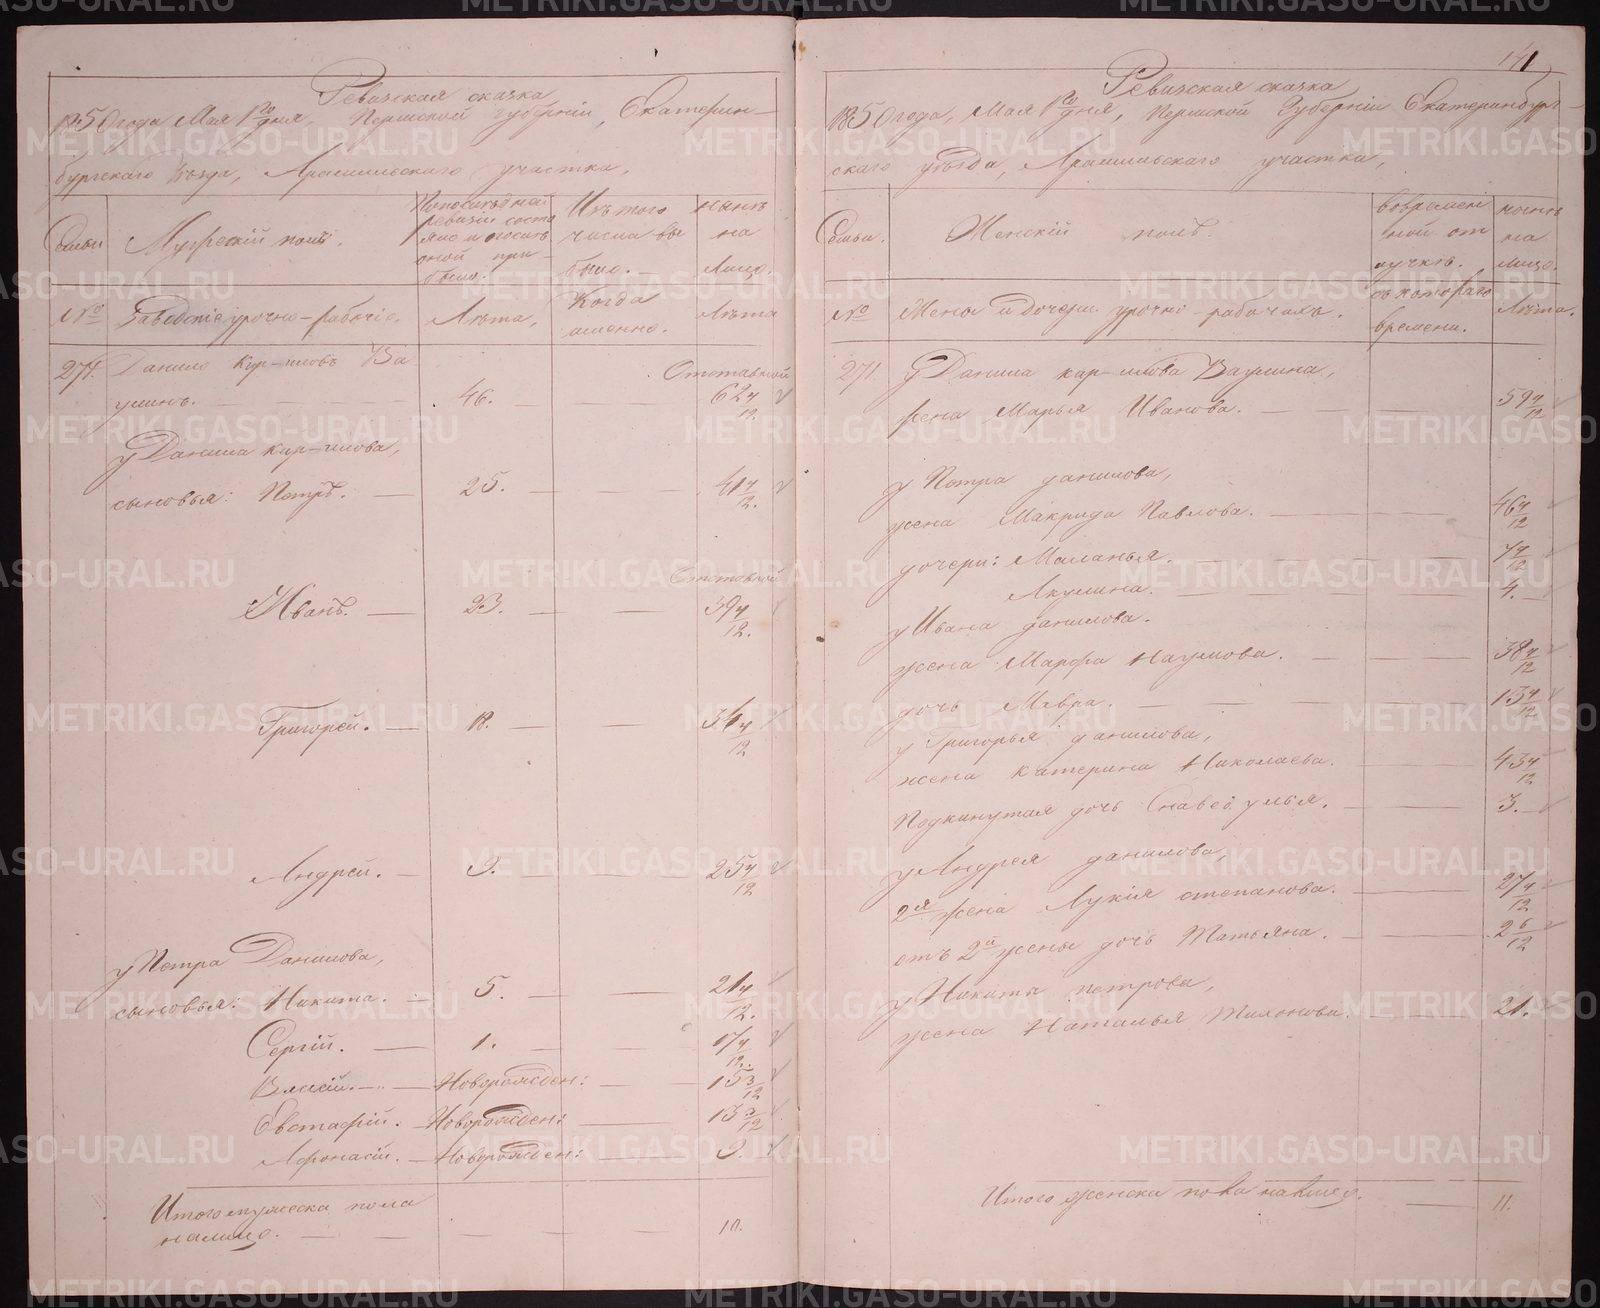 Ревизская сказка
1850 года Мая 1го дня, Пермской губернии, Екатерин-
бургскаго Уезда, Арамильскаго участка,
Семьи.
Мужескій полъ.
По последней ревизіи состояло и после оной прибыло.
Изъ того числа выбыло.
ныне на лицо.
№
Заводскіе урочно-рабочіе.
Лѣта,
Когда именно.
Лѣта
271. Данило Кир-иловъ Ва Отставной
улинъ. 46. 62 4/12
у Данила Кир-илова,
сыновья: Петръ. 25. 41 4/12.
Отставной
Иванъ. 23. 39 4/12.
Григорей. 18. 34 4/12
Андрей. 9. 25 4/12
у Петра Данилова,
сыновья: Никита. 5. 21 4/12.
Сергій. 1. 17 4/12.
Власій. Новорожден: 15 3/12
Евстафій. Новорожден: 13 3/12
Афонасій. Новорожден: 9.
Итого мужеска пола
налицо. 10.
141
Ревизская сказка
1850 года, Мая 1го дня, Пермской Губерніи Екатеринбург-
скаго уезда, Арамильскаго участка,
Семьи.
Женскій полъ.
во времен ной от лучкѣ.
ныне на лицо.
№
Жены и дочери урочно-рабочихъ.
съ котораго времени.
Лѣта.
271. у Данила кир-илова Ваулина,
жена Марья Иванова. 59 4/12
у Петра данилова,
жена Макрида Павлова. 46 4/12
дочери: Маланья. 7 4/12
Акулина. 4.
у Ивана данилова.
жена Марфа Наумова. 38 4/12
дочь Мавра. 13 4/12
у Григорья данилова,
жена катерина Николаева. 43 4/12
Подкинутая дочь 3.
у Андрея данилова,
2я жена Лукія степанова. 27 4/12
отъ 2й жены дочь Татьяна. 2 6/12
у Никиты петрова,
жена Наталья 21.
Итого женска пола налицо. 11.
METRIKI.GASO-URAL.RU